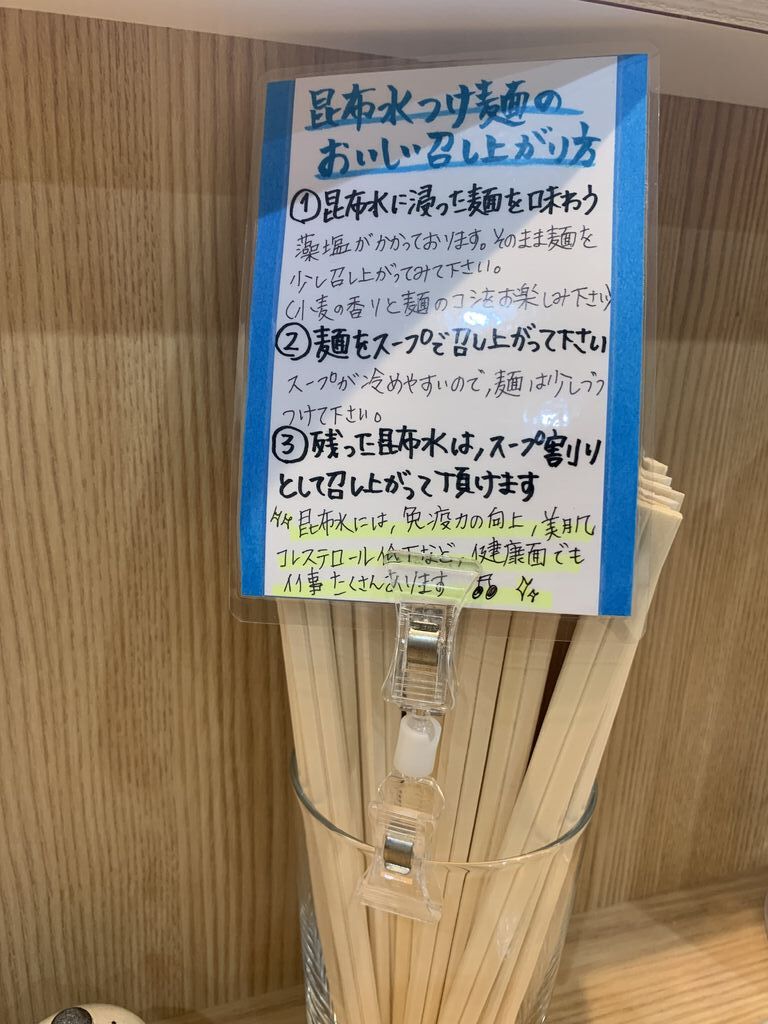 昆布水つけ麺の
おいしい召し上がり方
①昆布水に浸った麺を味わう
藻塩がかかっております。そのまま麺を
少し召し上がってみて下さい。
(小麦の香りと麺のコシをお楽しみ下さい)
②麺をスープで召し上がって下さい
スープが冷めやすいので,麺は少しづつ
つけて下さい。
③残った昆布水は,スープ割り
として召し上がって頂けます
昆布水には,免疫力の向上,美肌
コレステロール低下など,健康面でも
イイ事たくさんあります